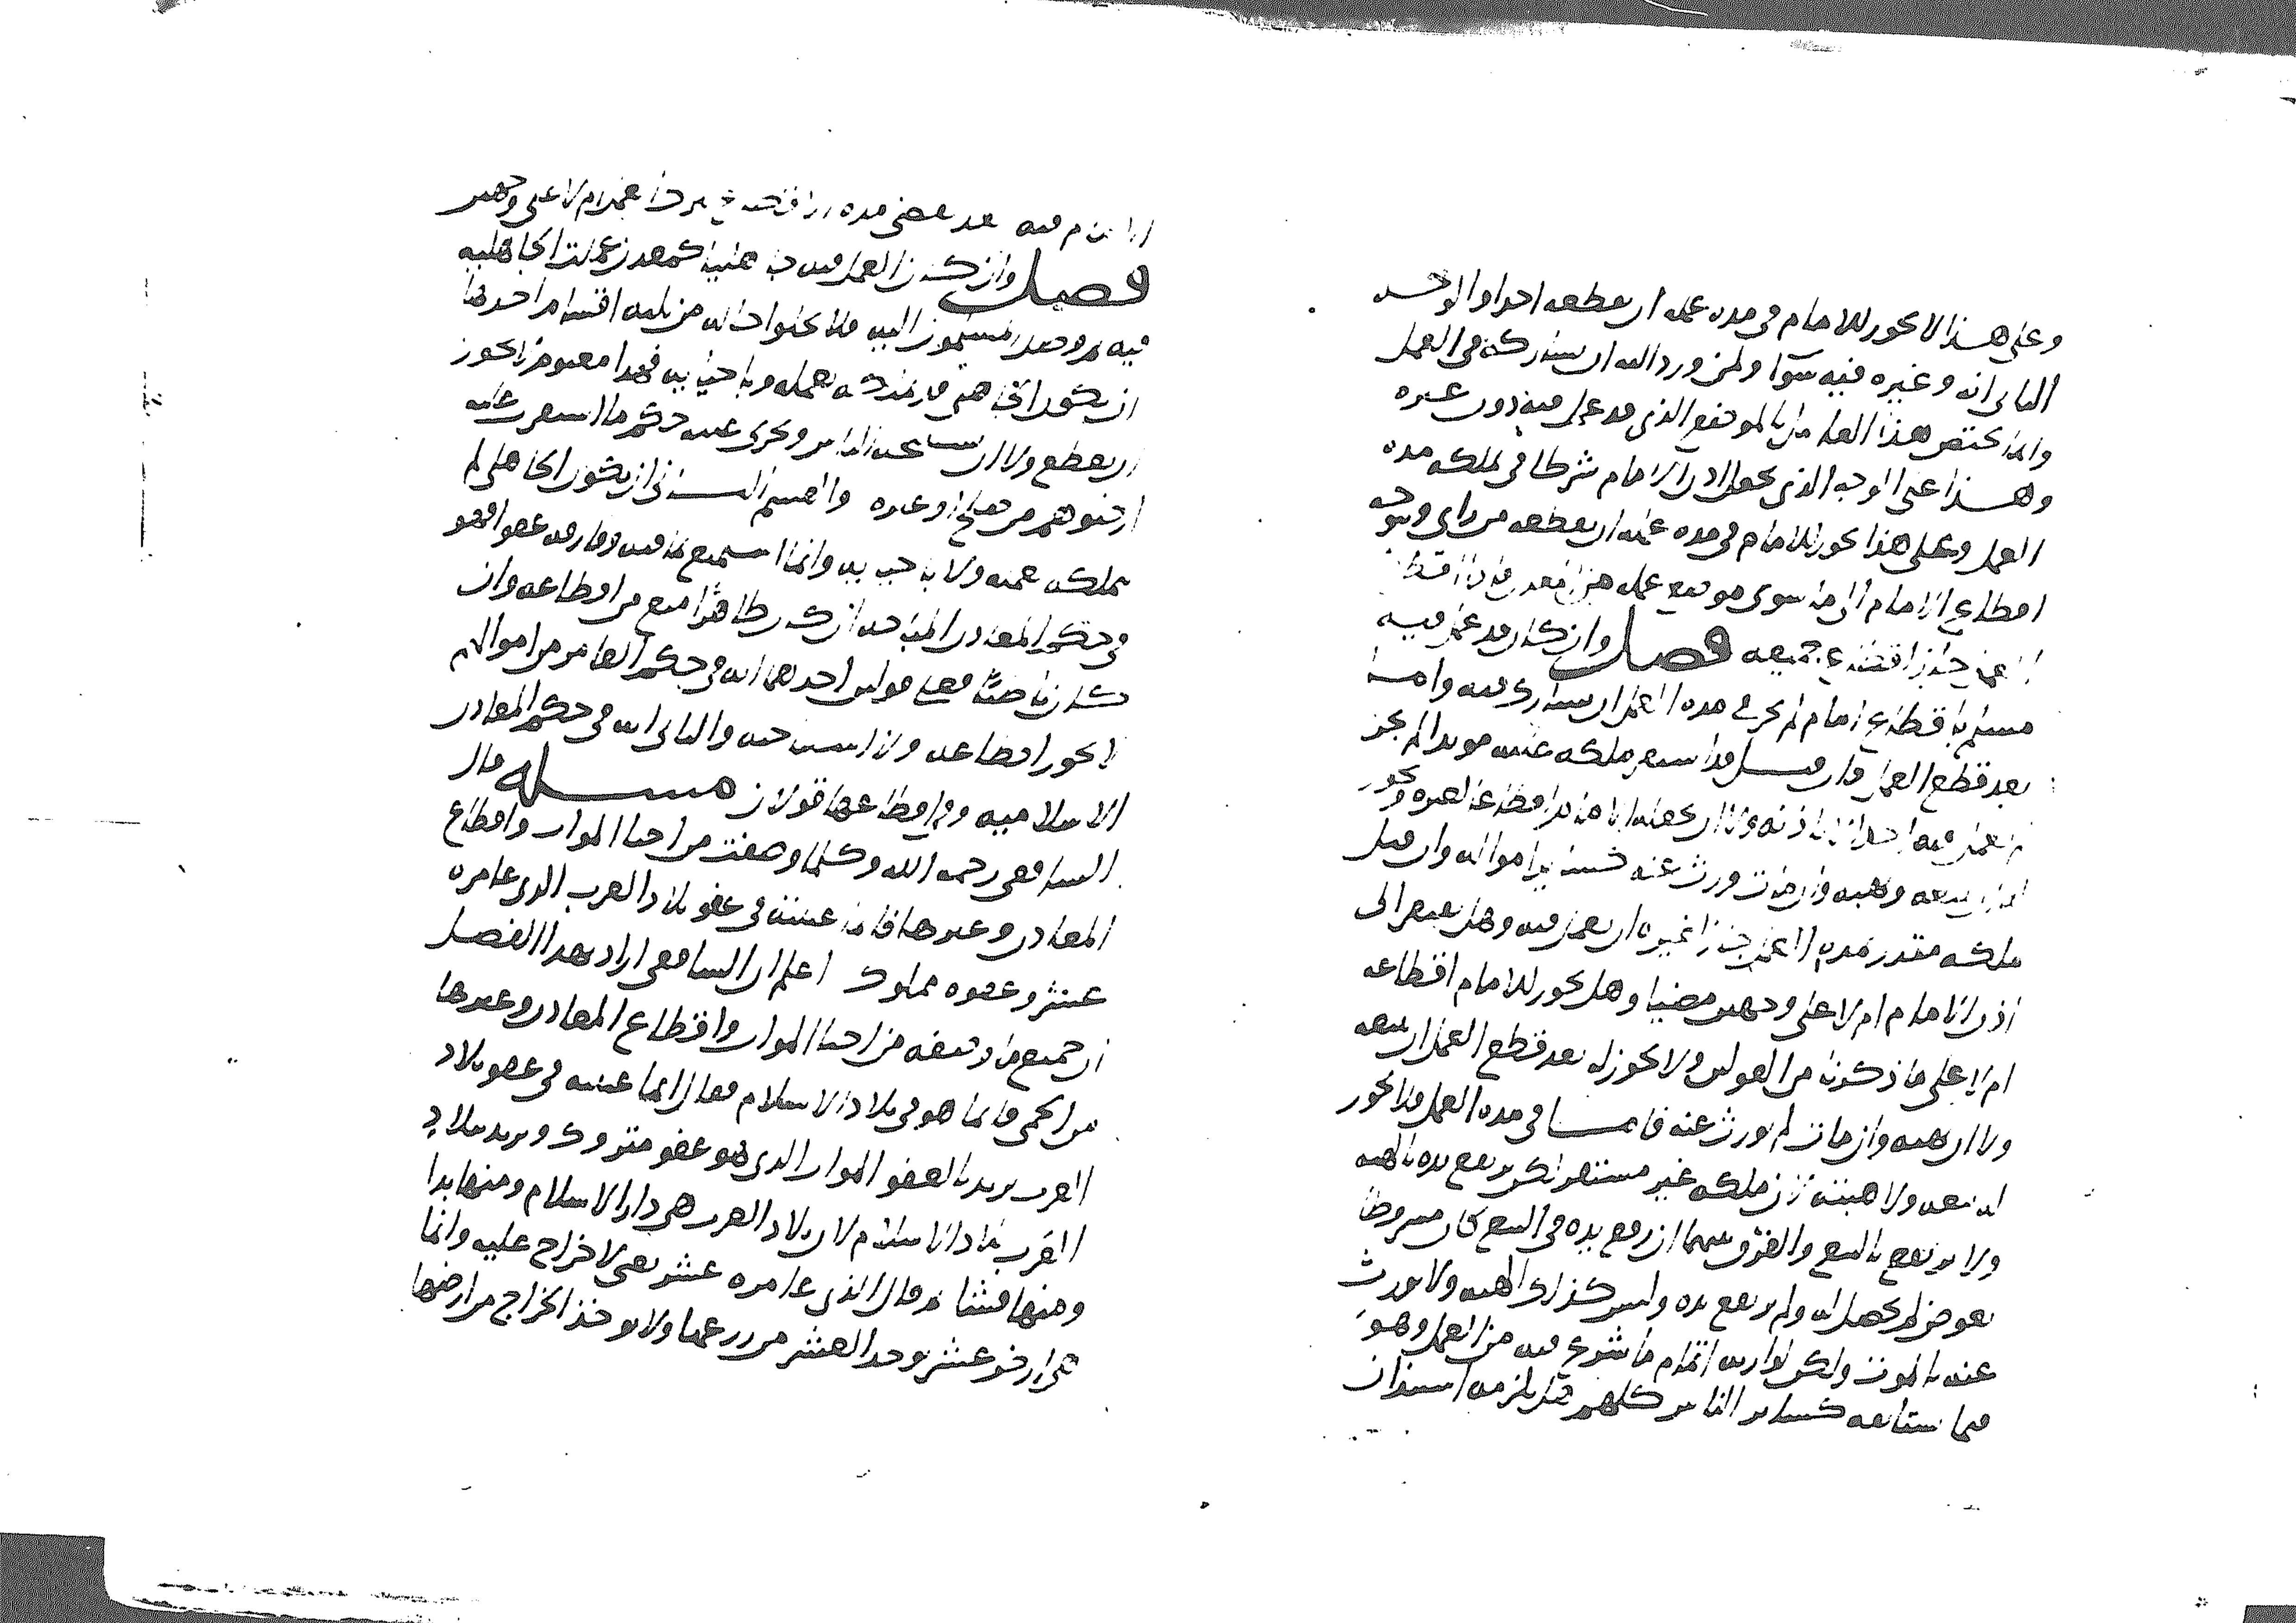 وعلى هذا لا يجوز للامام في مده عمله ان يقطعه احدا والوجه
الثاني انه وغيره فيه سوا ولمن ورد اليه ان يشاركه في العمل
وانما يختص هذا العامل بالموضع الذي قد عمل فيه دون غيره
وهذا على الوجه الذي يجعل اذن الامام شرطا في تملكه مده
العمل وعلى هذا يجوز للامام في مده عمله ان يقطعه من راى ويتوجه
اقطاع الامام الى ما سوى موضع عمله من المعدن فان
جميعه فصل وان كان قد عمل فيه
مسلم باقطاع امام لم يجز في مده العمل ان يشارك فيه واما
بعد قطع العمل فان قيل قد استقر ملكه عليه موبدا لم يجز
ان يعمل فيه احد الا باذنه ولا ان يجعله الامام اقطاعا لغيره ويجوز
له بيعه وهبته فان مات ورث عنه كساير امواله وان قيل
ملكه مقدر مده العمل جاز لغيره ان يعمل فيه وهل يفتقر الى
اذن الامام ام لا على وجهين مضيا وهل يجوز للامام اقطاعه
ام لا على ما ذكرنا من القولين ولا يجوز له بعد قطع العمل ان يبيعه
ولا ان يهبه وان مات لم يورث عنه فاما في مده العمل فلا يجوز
له بيعه ولا هبته لان ملكه غير مستقر لكن يرتفع يده بالهبه
ولا يرتفع بالبيع والفرق بينهما ان رفع يده في البيع كان مشروطا
بعوض لم يحصل له ولم يرتفع يده وليس كذلك الهبه ولا يورث
عنه بالموت ولكن لوارثه اتمام ما شرع فيه من العمل وهو
فيما يستانفه كساير الناس كلهم هل يلزمه استيذان
الامام فيه بعد تقضي مده ام لا على وجهين
فصل وان كان العمل فيه جاهليا كمعدن عملت الجاهليه
فيه ثم وصل المسلمون اليه فلا يخلوا حاله من ثلاثه اقسام احدها
ان يكون الجاهلي قد ملكه بعمله وباحيايه فهذا مغنوم لا يجوز
ان يقطع ولا ان الناس ويجري عليه حكم ما استقرت عليه
ارضوهم من صلح او عنوه والقسم الثاني ان يكون الجاهلي لم
يملكه بعمله ولا باحيايه وانما استمتع بما فيه وفارقه عفوا فهو
في حكم المعادن المباحه ان كان ظاهرا منع من اقطاعه وان
كان باطنا فعلى قولين احدهما انه في حكم الغامر من اموالهم
لا يجوز اقطاعه ولا استباحته والثاني انه في حكم المعادن
الاسلاميه وفي اقطاعها قولان مسله قال
الشافعي رحمه الله وكلما وصفت من احيا الموات واقطاع
المعادن وغيرها فانما عنيته في عفو بلاد العرب الذي عامره
عشر وعفوه مملوك اعلم ان الشافعي اراد بهذا الفصل
ان جميع ما وصفه من احيا الموات واقطاع المعادن وغيرها
من الحمى فانما هو في بلاد الاسلام فقال انما عنيته في عفو بلاد
العرب يريد بالعفو الموات الذي هو عفو متروك ويريد ببلاد
العرب بلاد الاسلام لان بلاد العرب هي دار الاسلام ومنها بدا
ومنها فشا ثم قال الذي عامره عشر يعني لا خراج عليه وانما
هي ارض عشر يوخذ العشر من زرعها ولا يوخذ الخراج من ارضها